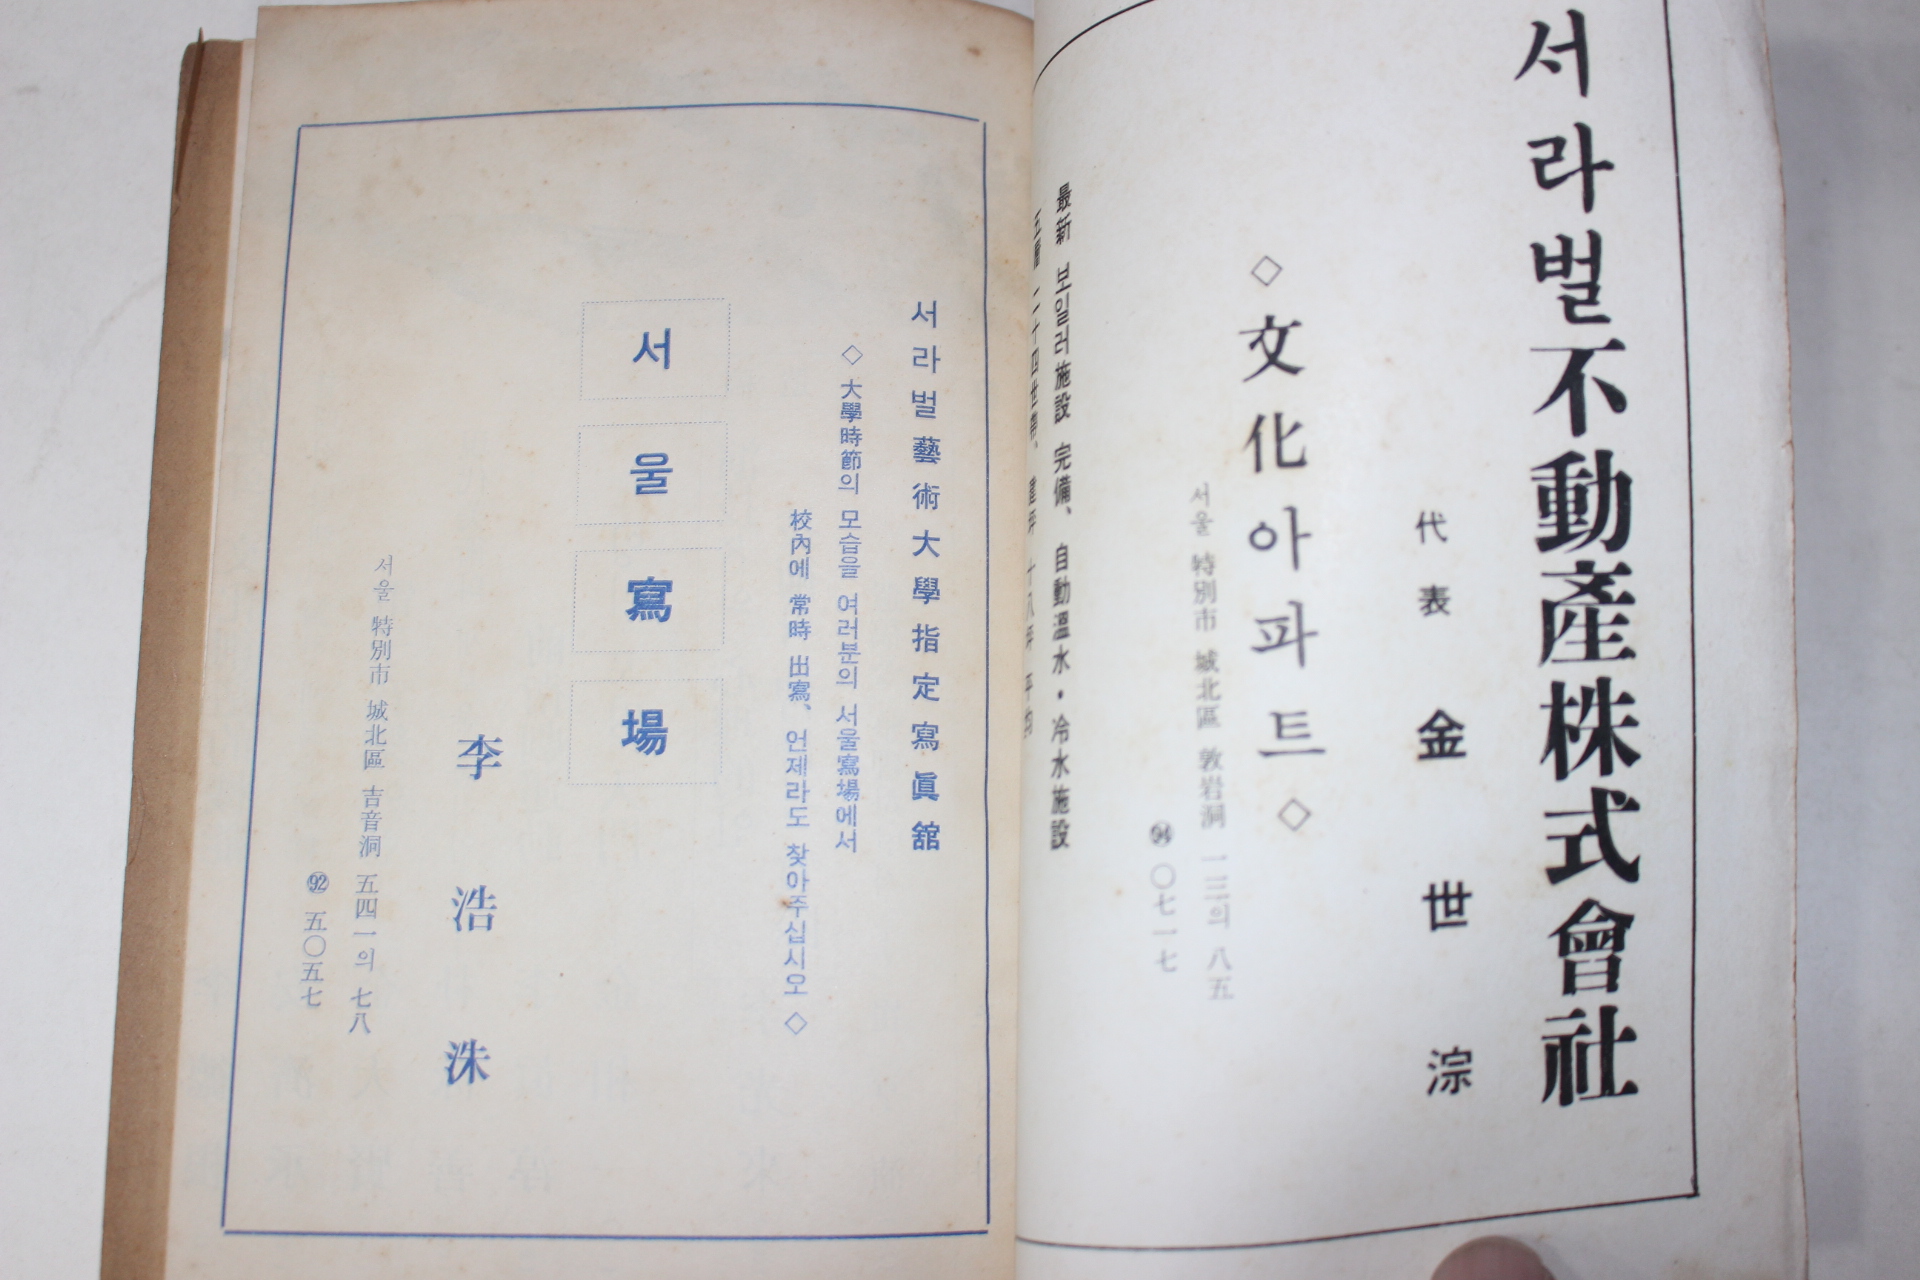 서라벌不動產株式會社
代表 金世淙
◇文化아파트◇
서울 特別市 城北區 敦岩洞 一三의 八五
㉔ 〇七一七
最新 보일러施設 完備、自動溫水·冷水施設
五層 二十四世帶、建坪 十八坪 平均
서라벌藝術大學指定寫眞舘
◇大學時節의 모습을 여러분의 서울寫場에서
校內에 常時 出寫、언제라도 찾아주십시오◇
서울寫場
李浩洙
서울 特別市 城北區 吉音洞 五四一의 七八
㉒ 五〇五七